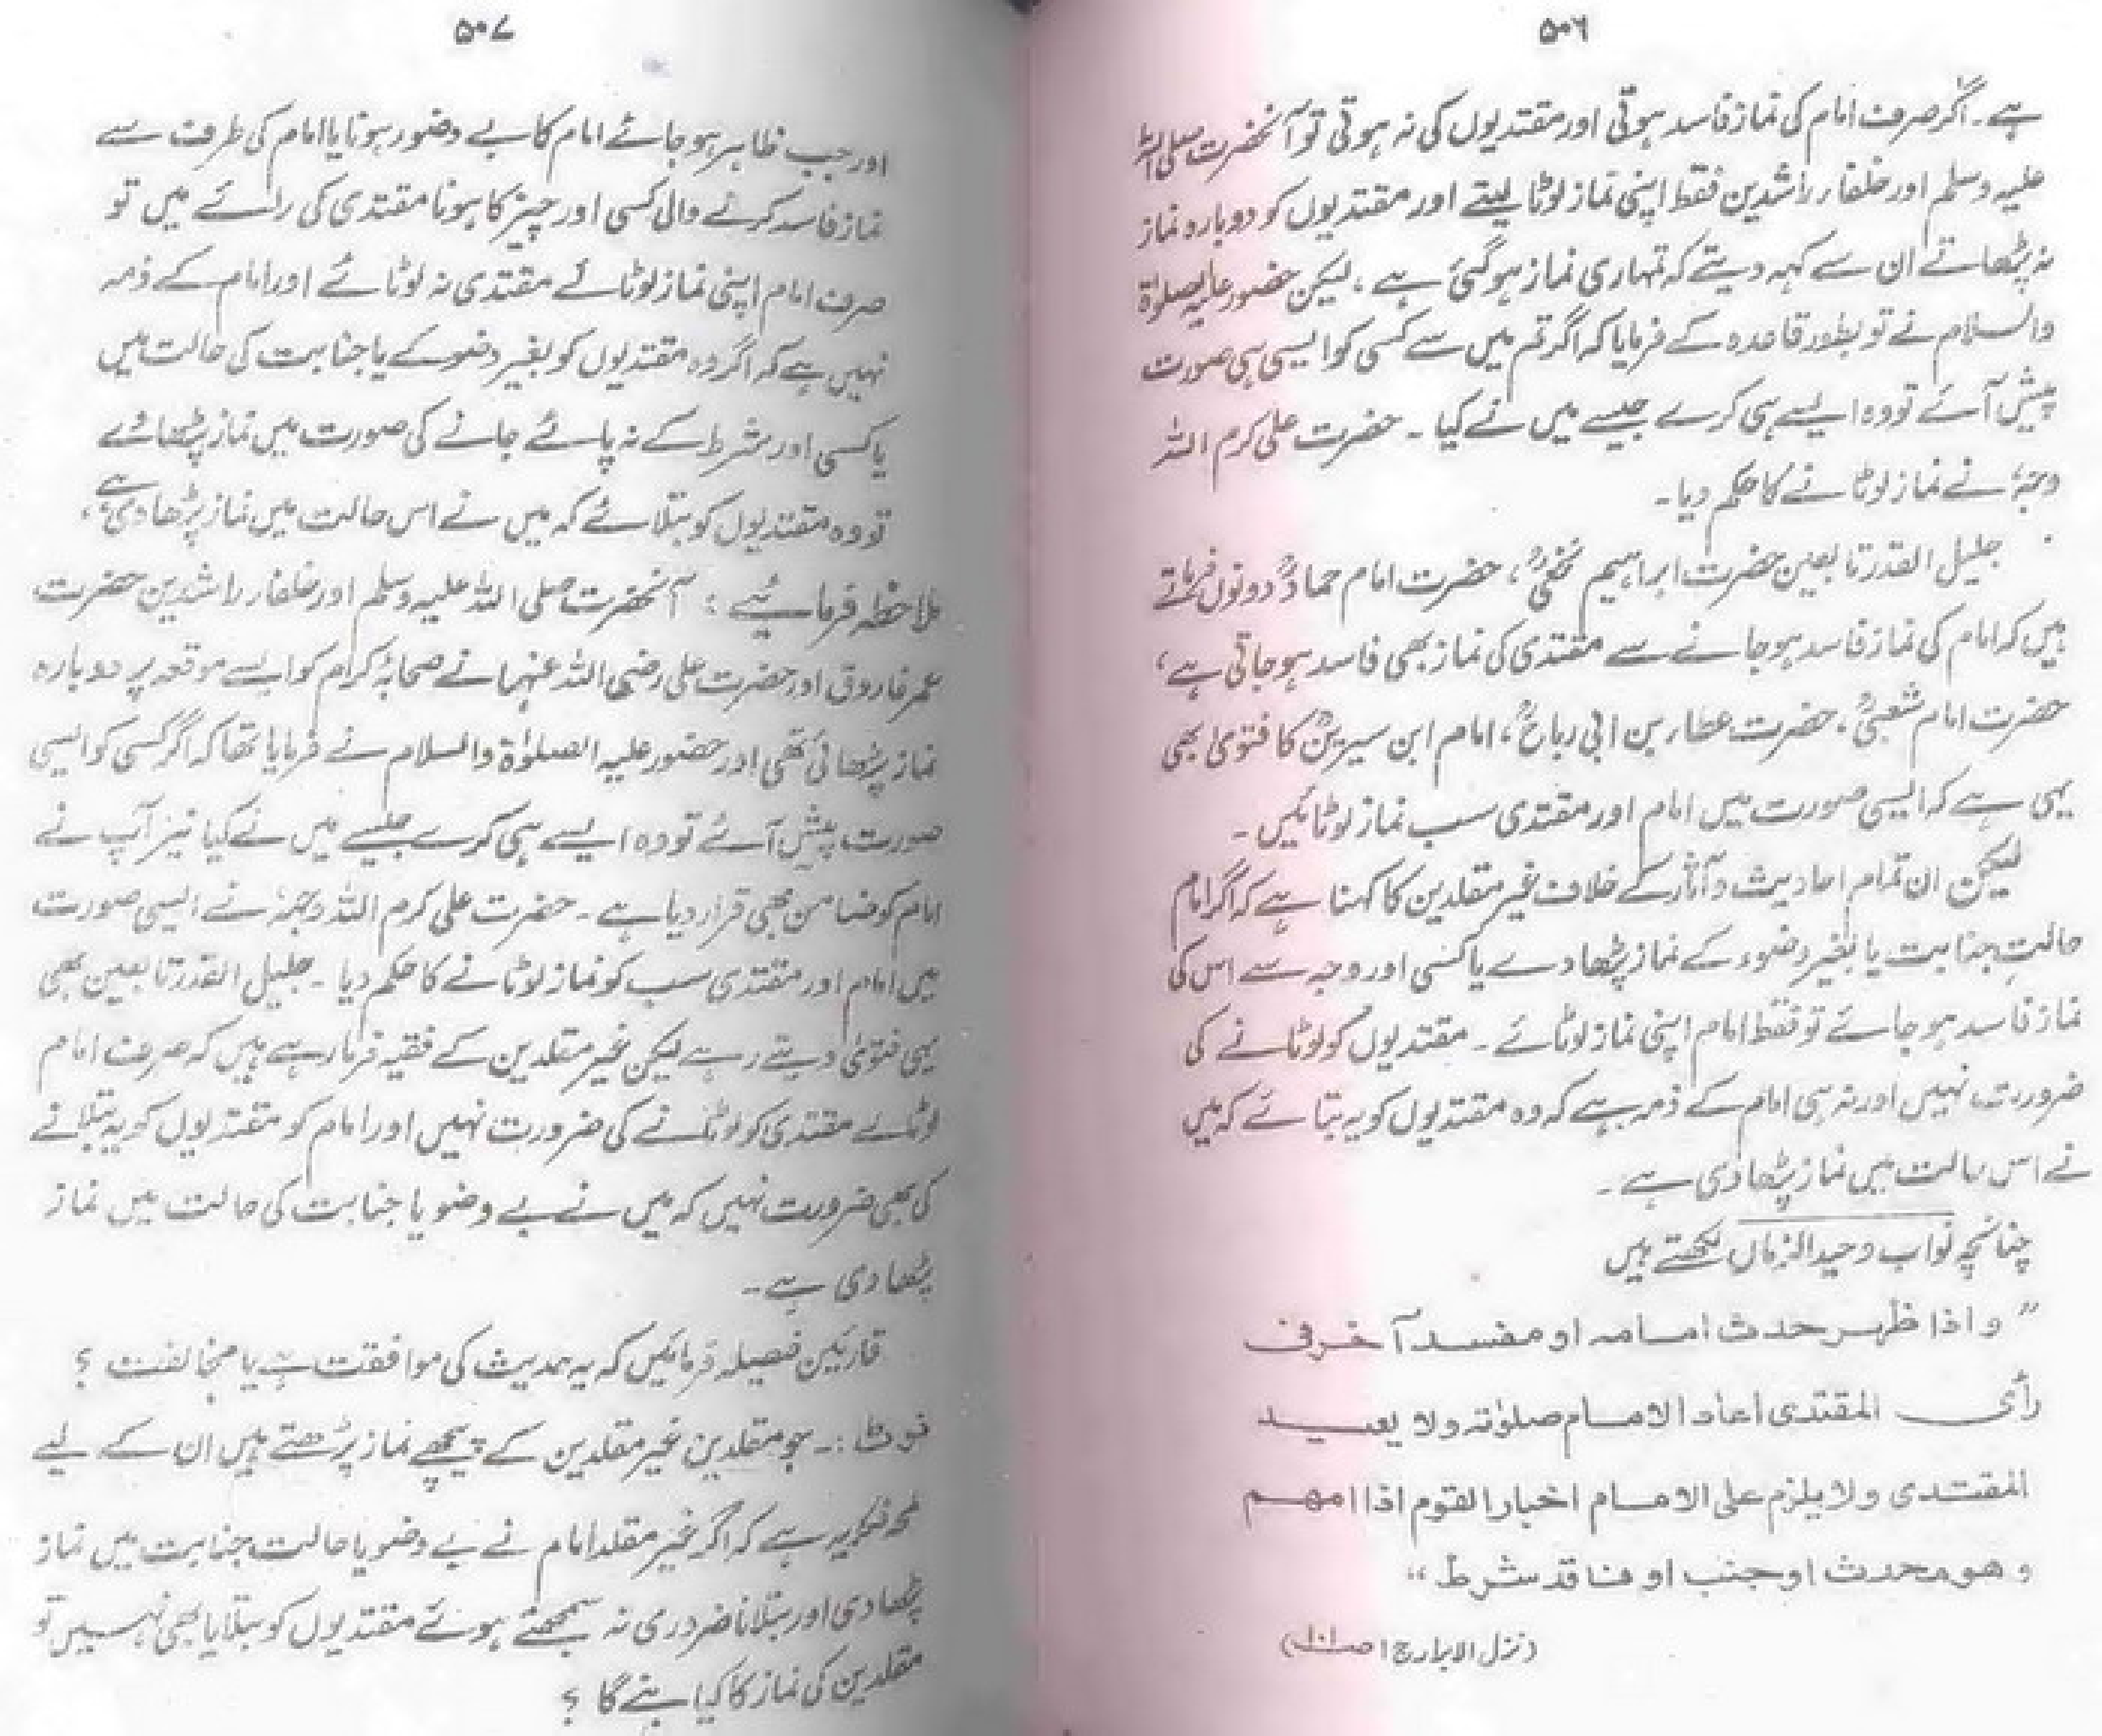 ۵۰۶
ہے۔ اگر صرف امام کی نماز فاسد ہوتی اور مقتدیوں کی نہ ہوتی تو آنحضرت صلی اللہ
علیہ وسلم اور خلفاء راشدین فقط اپنی نماز لوٹا لیتے اور مقتدیوں کو دوبارہ نماز
نہ پڑھاتے ان سے کہہ دیتے کہ تمہاری نماز ہوگئی ہے ، لیکن حضور علیہ الصلوٰۃ
والسلام نے تو بطور قاعدہ کے فرمایا کہ اگر تم میں سے کسی کو ایسی ہی صورت
پیش آئے تو وہ ایسے ہی کرے جیسے میں نے کیا ۔ حضرت علی کرم اللہ
وجہہٗ نے نماز لوٹانے کا حکم دیا۔
جلیل القدر تابعین حضرت ابراہیم نخعیؒ ، حضرت امام حمادؒ دونوں فرماتے
ہیں کہ امام کی نماز فاسد ہو جانے سے مقتدی کی نماز بھی فاسد ہو جاتی ہے ،
حضرت امام شعبیؒ ، حضرت عطاء بن ابی رباحؒ ، امام ابن سیرینؒ کا فتویٰ بھی
یہی ہے کہ ایسی صورت میں امام اور مقتدی سب نماز لوٹائیں ۔
لیکن ان تمام احادیث و آثار کے خلاف غیر مقلدین کا کہنا ہے کہ اگر امام
حالتِ جنابت یا بغیر وضوء کے نماز پڑھا دے یا کسی اور وجہ سے اس کی
نماز فاسد ہو جائے تو فقط امام اپنی نماز لوٹائے ۔ مقتدیوں کو لوٹانے کی
ضرورت نہیں اور نہ ہی امام کے ذمہ ہے کہ وہ مقتدیوں کو یہ بتائے کہ میں
نے اس حالت میں نماز پڑھا دی ہے ۔
چنانچہ نواب وحید الزماں لکھتے ہیں
” و اذا ظہر حدث امامہ او مفسد آخر فی
رأی المقتدی اعاد الامام صلوٰتہ ولا یعید
المقتدی ولا یلزم علی الامام اخبار القوم اذا امھم
و ھو محدث او جنب او فاقد شرط “
(نزل الابرار ج ۱ صـ۱۰۱)
۵۰۷
اور جب ظاہر ہو جائے امام کا بے وضو ہونا یا امام کی طرف سے
نماز فاسد کرنے والی کسی اور چیز کا ہونا مقتدی کی رائے میں تو
صرف امام اپنی نماز لوٹائے مقتدی نہ لوٹائے اور امام کے ذمہ
نہیں ہے کہ اگر وہ مقتدیوں کو بغیر وضو کے یا جنابت کی حالت میں
یا کسی اور شرط کے نہ پائے جانے کی صورت میں نماز پڑھائے
تو وہ مقتدیوں کو بتلائے کہ میں نے اس حالت میں نماز پڑھا دی ہے ،
ملاحظہ فرمائیے : آنحضرت صلی اللہ علیہ وسلم اور خلفاء راشدین حضرت
عمر فاروق اور حضرت علی رضی اللہ عنہما نے صحابۂ کرام کو ایسے موقعہ پر دوبارہ
نماز پڑھائی تھی اور حضور علیہ الصلوٰۃ والسلام نے فرمایا تھا کہ اگر کسی کو ایسی
صورت پیش آئے تو وہ ایسے ہی کرے جیسے میں نے کیا نیز آپ نے
امام کو ضامن بھی قرار دیا ہے ۔ حضرت علی کرم اللہ وجہہٗ نے ایسی صورت
میں امام اور مقتدی سب کو نماز لوٹانے کا حکم دیا ۔ جلیل القدر تابعین بھی
یہی فتویٰ دیتے رہے لیکن غیر مقلدین کے فقیہ فرما رہے ہیں کہ صرف امام
لوٹائے مقتدی کو لوٹانے کی ضرورت نہیں اور امام کو مقتدیوں کو یہ بتلانے
کی بھی ضرورت نہیں کہ میں نے بے وضو یا جنابت کی حالت میں نماز
پڑھا دی ہے ۔
قارئین فیصلہ فرمائیں کہ یہ حدیث کی موافقت ہے یا مخالفت ؟
نوٹ :۔ جو مقلدین غیر مقلدین کے پیچھے نماز پڑھتے ہیں ان کے لیے
لمحہ فکریہ ہے کہ اگر غیر مقلد امام نے بے وضو یا حالت جنابت میں نماز
پڑھا دی اور بتلانا ضروری نہ سمجھتے ہوئے مقتدیوں کو بتلایا بھی نہیں تو
مقلدین کی نماز کا کیا بنے گا ؟